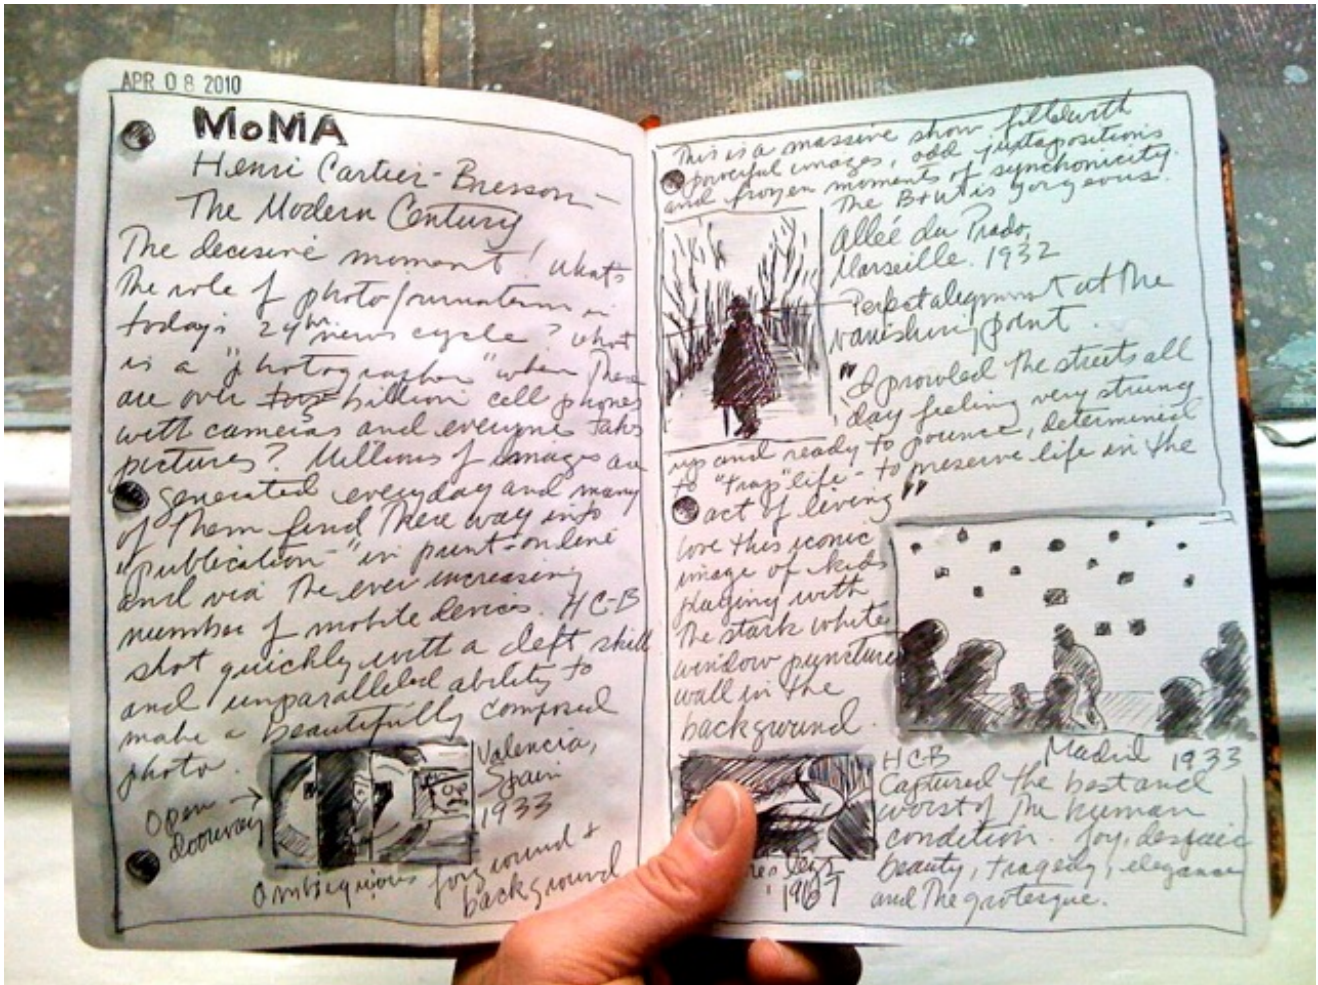 APR 08 2010
MoMA
Henri Cartier-Bresson –
The Modern Century
The decisive moment! What's
the role of photojournalism in
today's 24hr news cycle? What
is a "photographer" when there
are over billion cell phones
with cameras and everyone takes
pictures? Millions of images are
generated everyday and many
of them find there way into
"publication" in print – online
and via the ever increasing
number of mobile devices. HC-B
shot quickly with a deft skill
and unparalleled ability to
make a beautifully composed
photo.
Open
doorway
Valencia,
Spain
1933
Ambiguous foreground &
background
This is a massive show filled with
powerful images, odd juxtapositions
and frozen moments of synchonicity.
The B+W is gorgeous.
Alleé du Prado,
Marseille. 1932
Perfect alignment at the
vanishing point.
"I prowled the streets all
day feeling very strung
up and ready to pounce, determined
to "trap" life – to preserve life in the
act of living"
love this iconic
image of kids
playing with
the stark white
window puncture
wall in the
background.
Madrid 1933
HCB
Captured the best and
worst of the human
condition. Joy, despair
beauty, tragedy, elegance
and the grotesque.